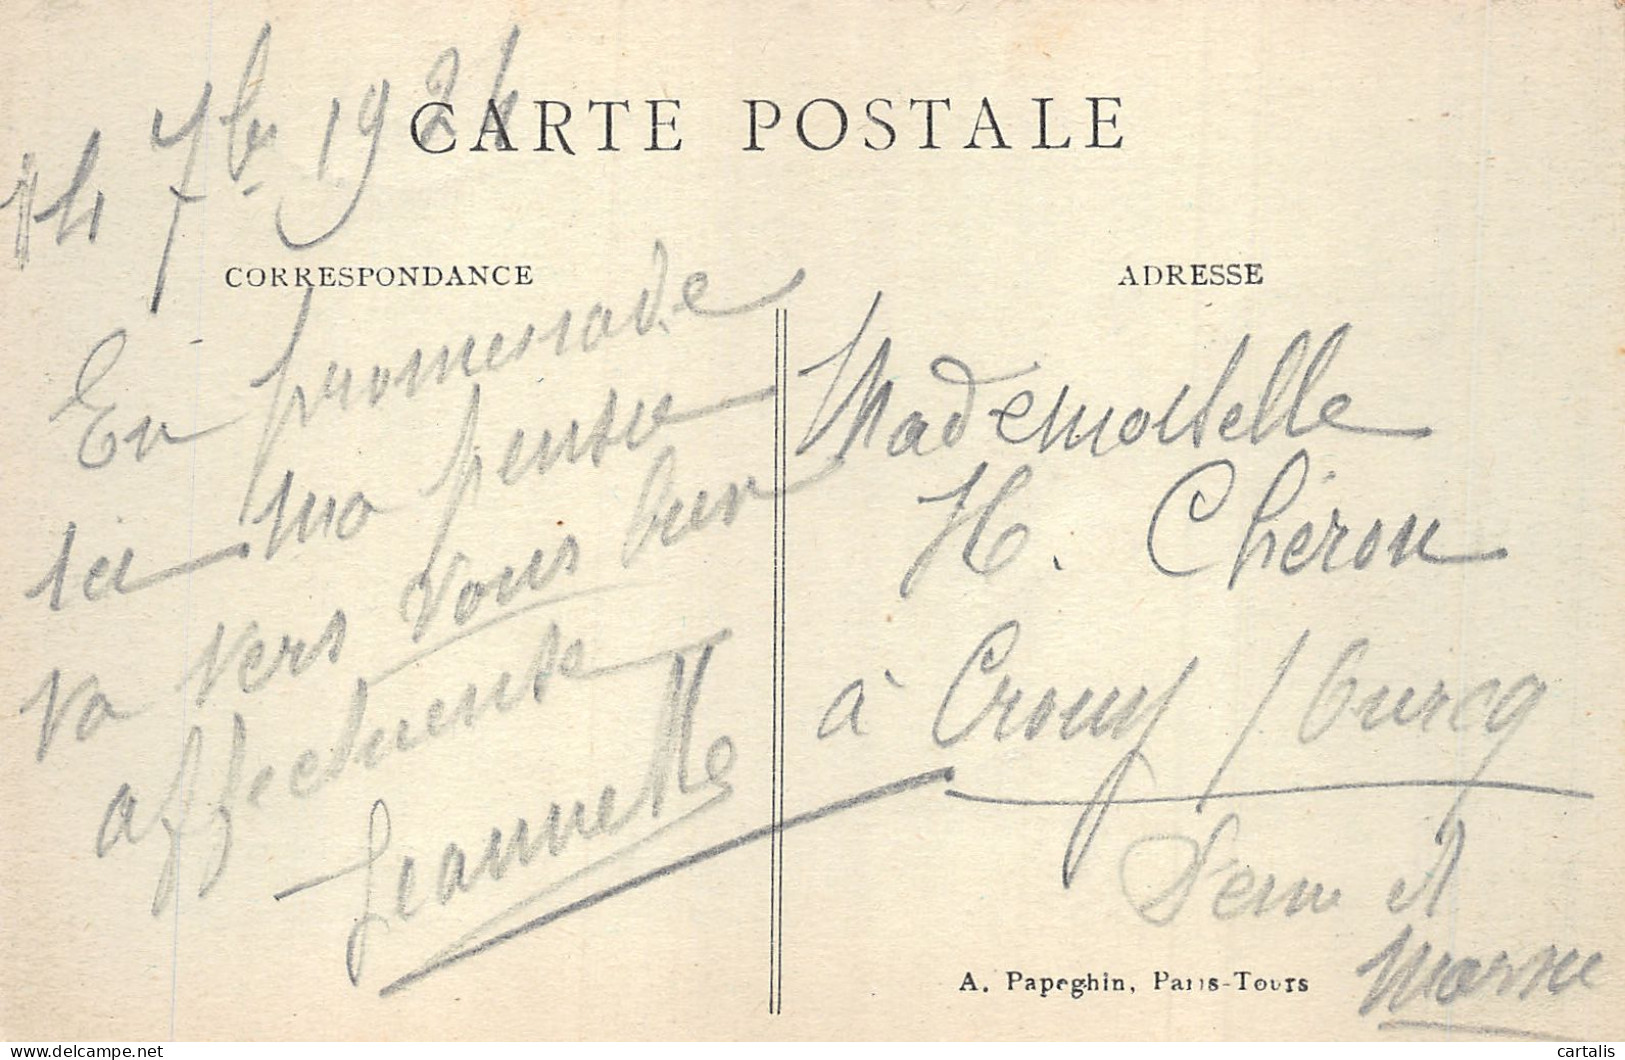 14 7bre 1924
CARTE POSTALE
CORRESPONDANCE
En promenade
ici ma pensée
va vers vous bien
affectueuse
Jeannette
ADRESSE
Mademoiselle
H. Chéron
à Crouy s/ Ourcq
Seine et
Marne
A. Papeghin, Paris-Tours
cartalis